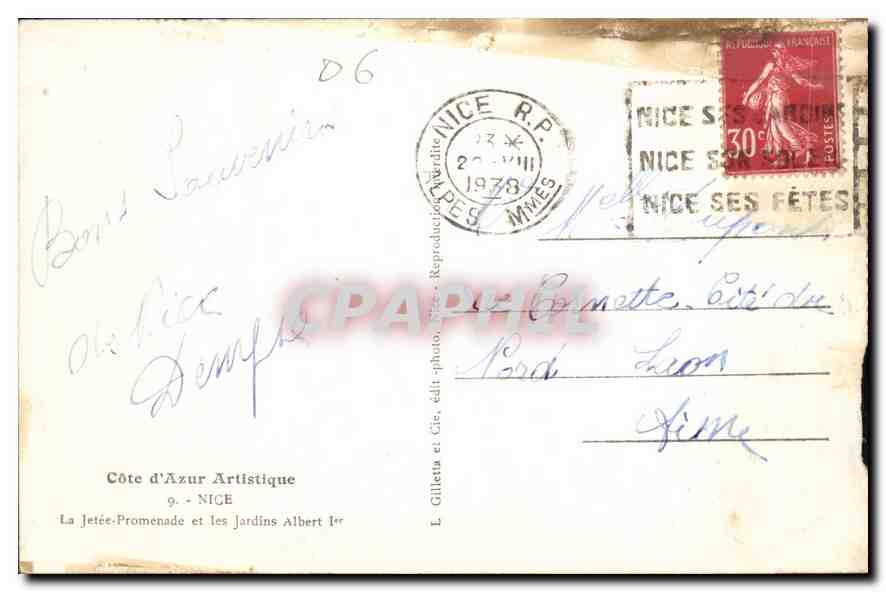 06
Bons Souvenirs
de Nice
Côte d'Azur Artistique
9. - NICE
La Jetée-Promenade et les Jardins Albert Ier
L. Gilletta et Cie, édit.-photo, Nice - Reproduction interdite
NICE R.P.
1938
ALPES MMES
REPUBLIQUE FRANÇAISE
30c
POSTES
NICE SES JARDINS
NICE SON SOLEIL
NICE SES FÊTES
Melle Dupont
Cité du
Nord Laon
Aisne
CPAPHIL